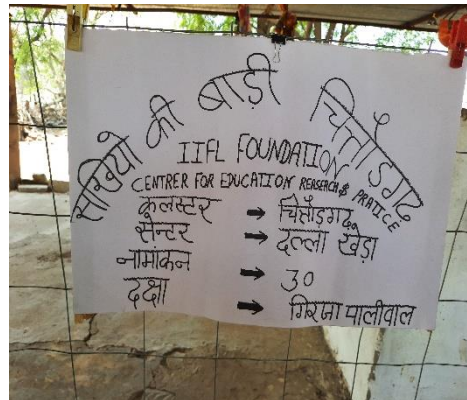 सखियो की बाड़ी चित्तौडगढ
IIFL FOUNDATION
CENTRER FOR EDUCATION RERSERCH & PRATICE
कलस्टर → चित्तौडगढ
सेन्टर → दल्ला खेड़ा
नामांकन → 30
दक्षा → गिरजा पालीवाल